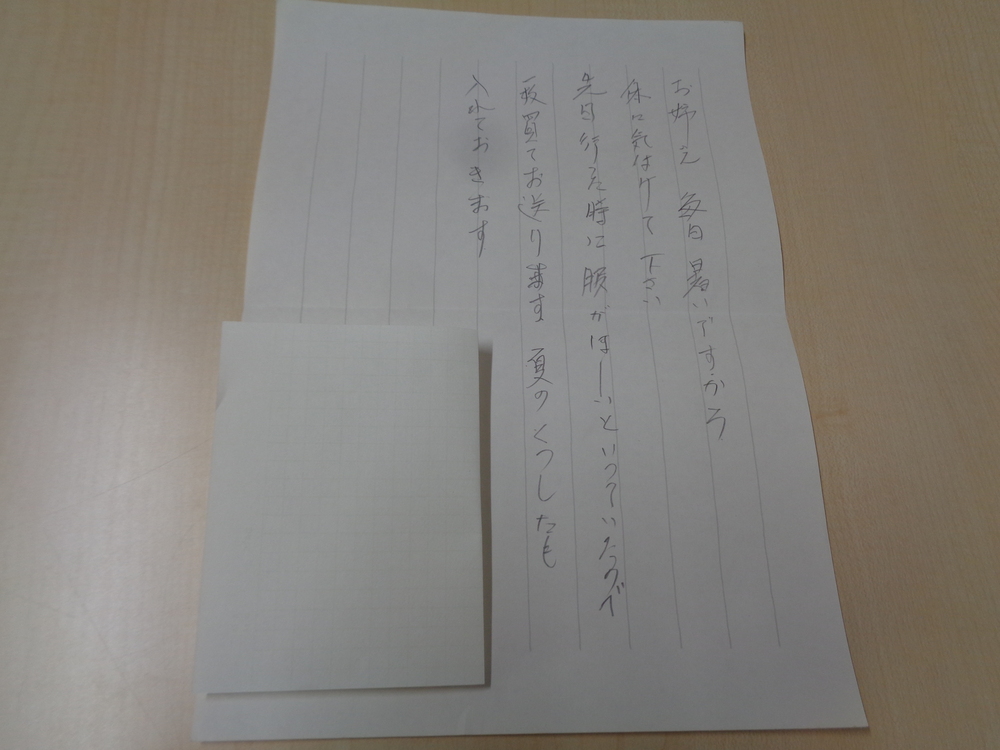 お姉え 毎日暑いですから
体に気付けて下さい
先日行った時に服がほしいといっていたので
一枚買てお送ります 夏のくつしたも
入れておきます